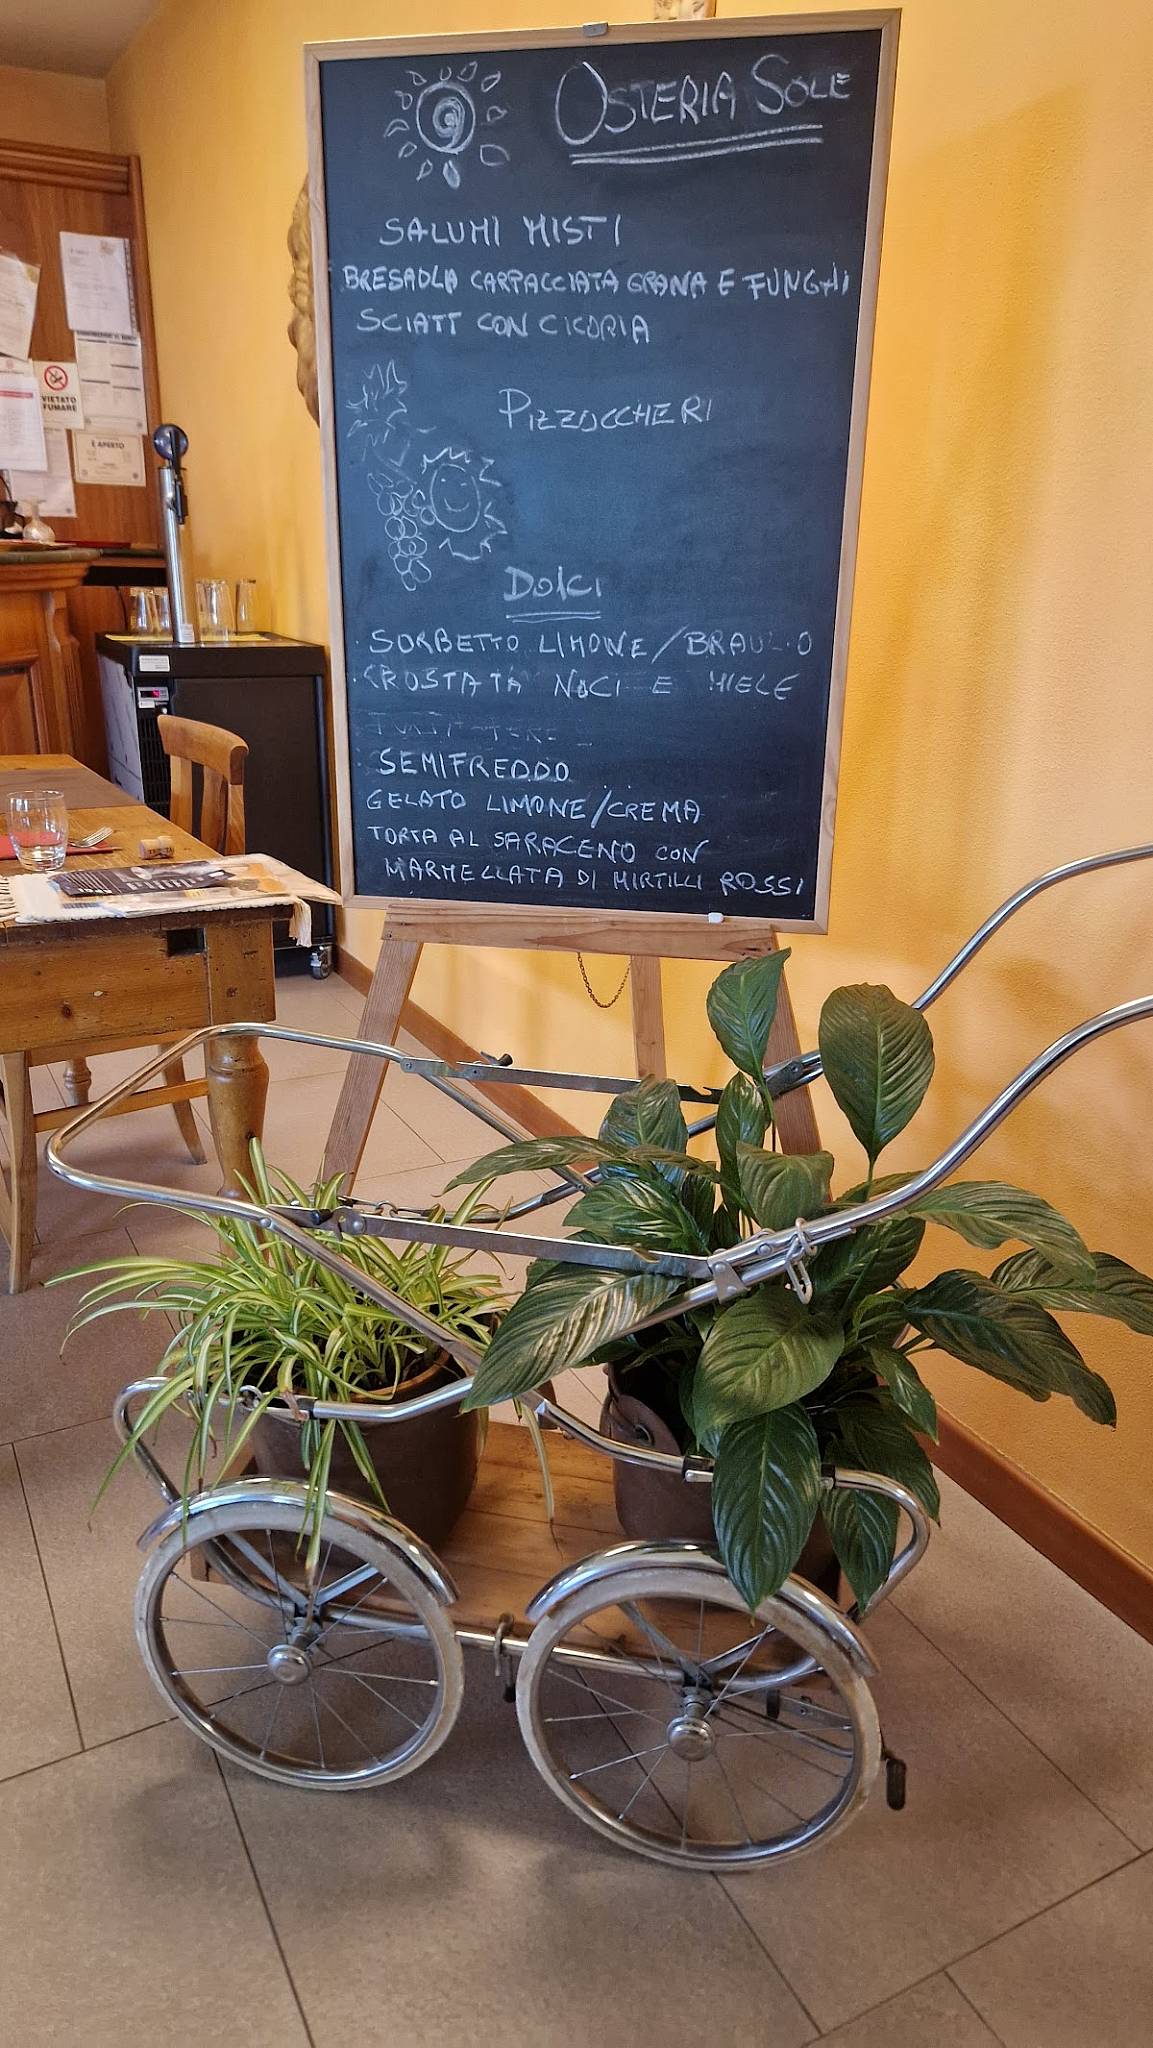 OSTERIA SOLE
SALUMI MISTI
BRESAOLA CARPACCIATA GRANA E FUNGHI
SCIATT CON CICORIA
PIZZOCCHERI
DOLCI
SORBETTO LIMONE/BRAULIO
CROSTATA NOCI E MIELE
SEMIFREDDO
GELATO LIMONE/CREMA
TORTA AL SARACENO CON
MARMELLATA DI MIRTILLI ROSSI
VIETATO
FUMARE
È APERTO